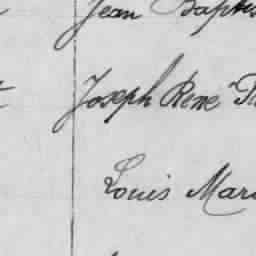 Jean Baptis
Joseph René
Louis Mari